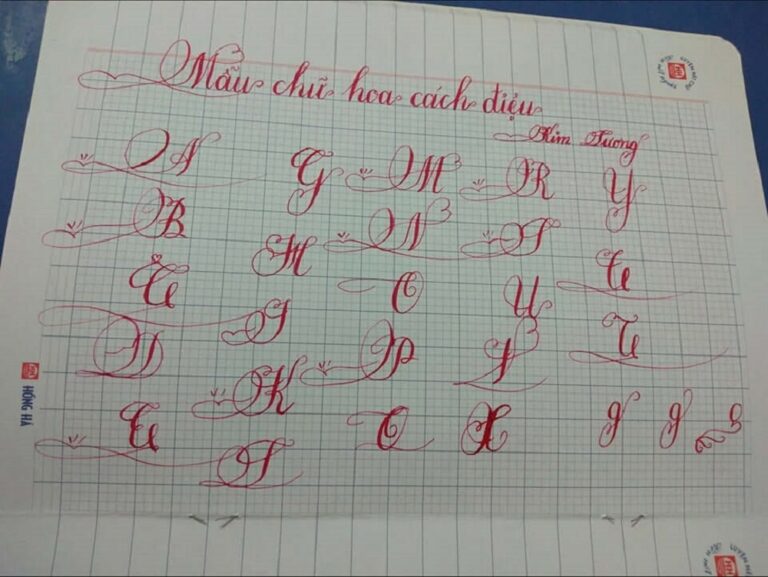 Mẫu chữ hoa cách điệu
Kim Tương
A G M R Y
B H N S
C I O U
D K P V
E L Q X
HỒNG HÀ